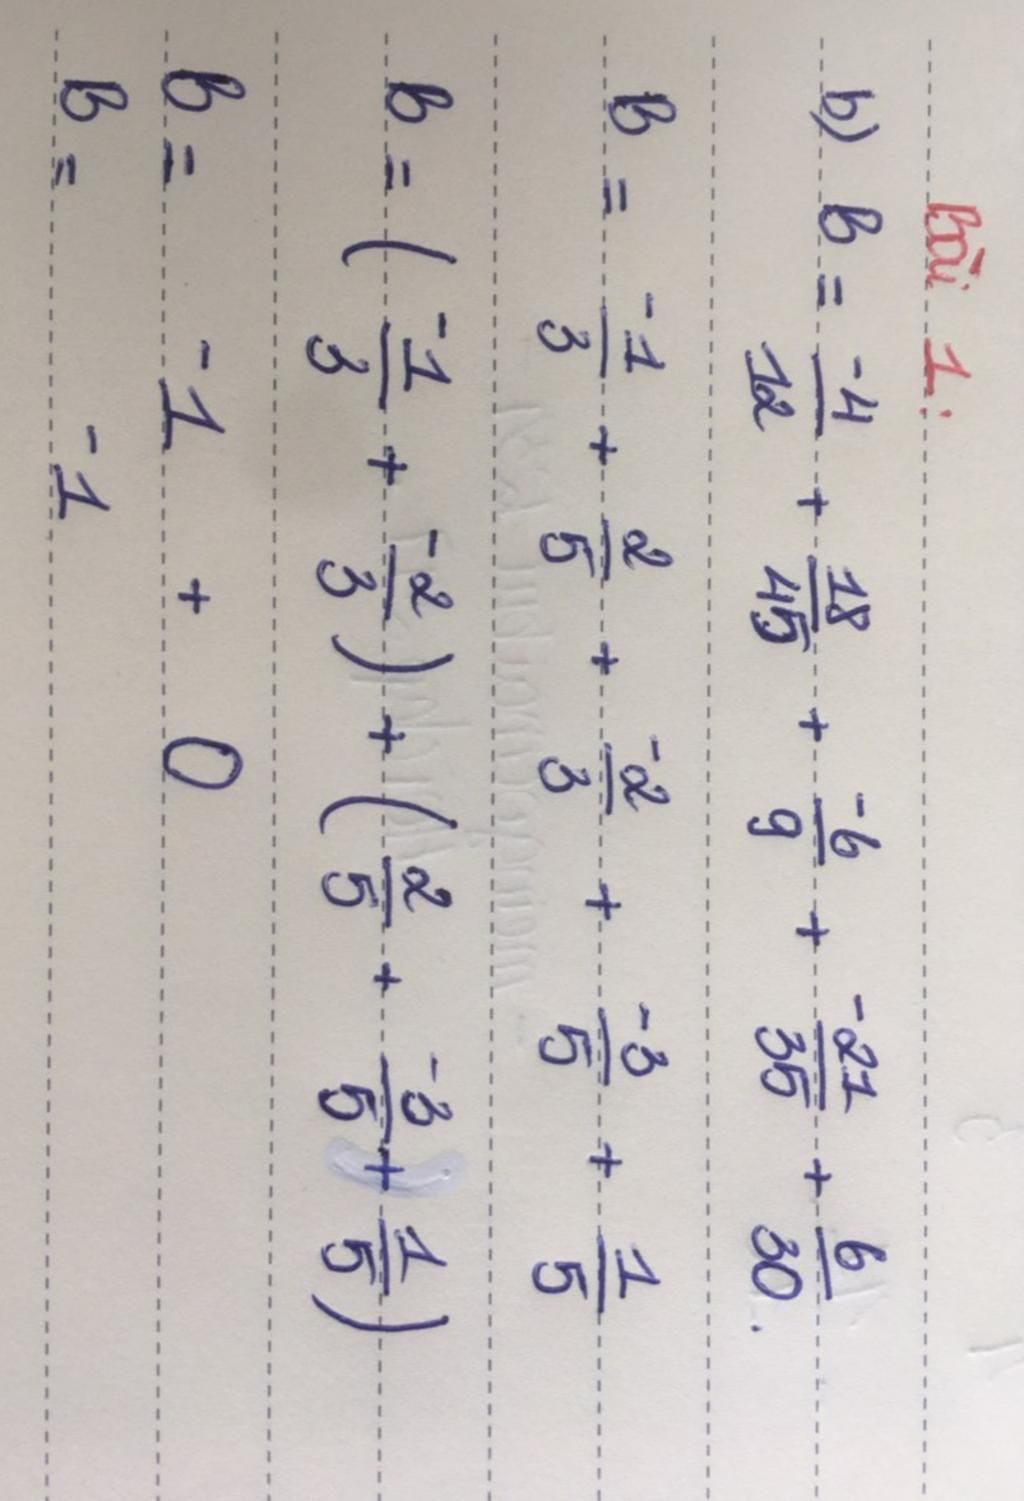 Bài 1:
b) B = -4/12 + 18/45 + -6/9 + -21/35 + 6/30.
B = -1/3 + 2/5 + -2/3 + -3/5 + 1/5
B = (-1/3 + -2/3) + (2/5 + -3/5 + 1/5)
B = -1 + 0
B = -1